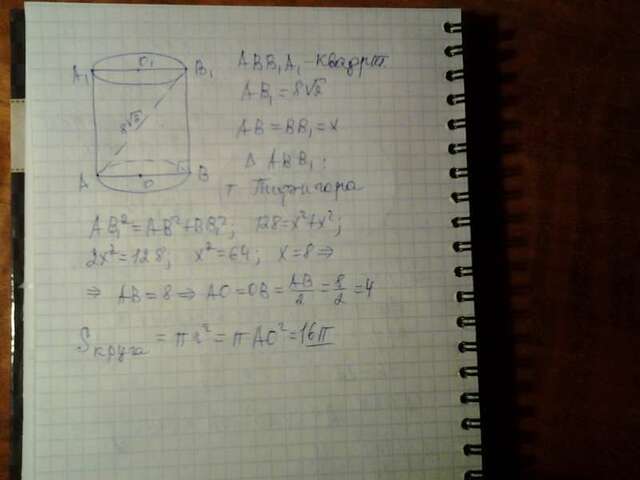 O₁
A₁ B₁
8√2
A O B
ABB₁A₁ - квадрат.
AB₁ = 8√2
AB = BB₁ = x
Δ ABB₁:
т. Пифагора
AB₁² = AB² + BB₁²; 128 = x² + x²;
2x² = 128; x² = 64; x = 8 ⇒
⇒ AB = 8 ⇒ AO = OB = AB/2 = 8/2 = 4
Sкруга = πr² = πAO² = 16π